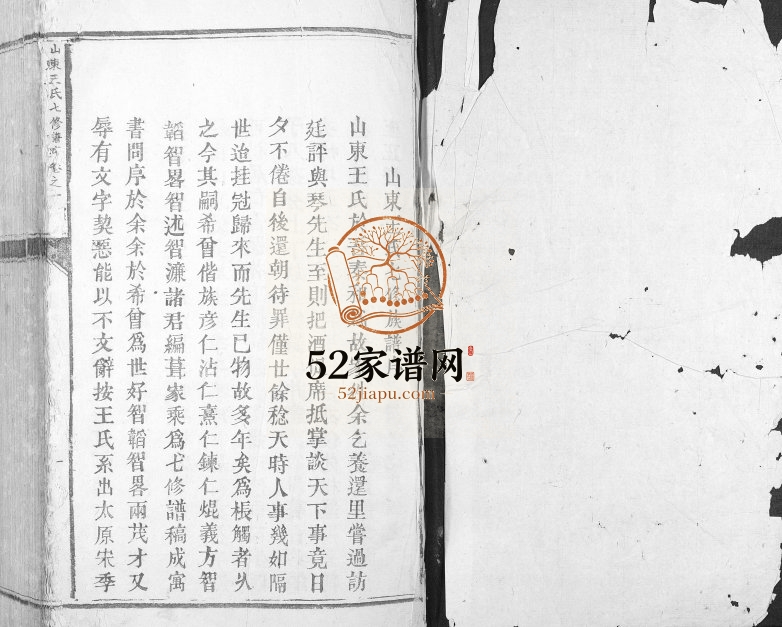 山東王氏七修族譜
山東王氏於
故
余乞養還里嘗過訪
廷評與琴先生至則把酒
席抵掌談天下事竟日
夕不倦自後還朝待罪僅廿餘稔天時人事幾如隔
世迨挂冠歸來而先生已物故多年矣爲棖觸者久
之今其嗣希曾偕族彥仁沾仁熹仁鍊仁焜義方智
韜智畧智述智濂諸君編葺家乘爲七修譜稿成寓
書問序於余余於希曾爲世好智韜智畧兩茂才又
辱有文字契惡能以不文辭按王氏系出太原宋季
山東王氏七修
卷之一
52家谱网
52jiapu.com